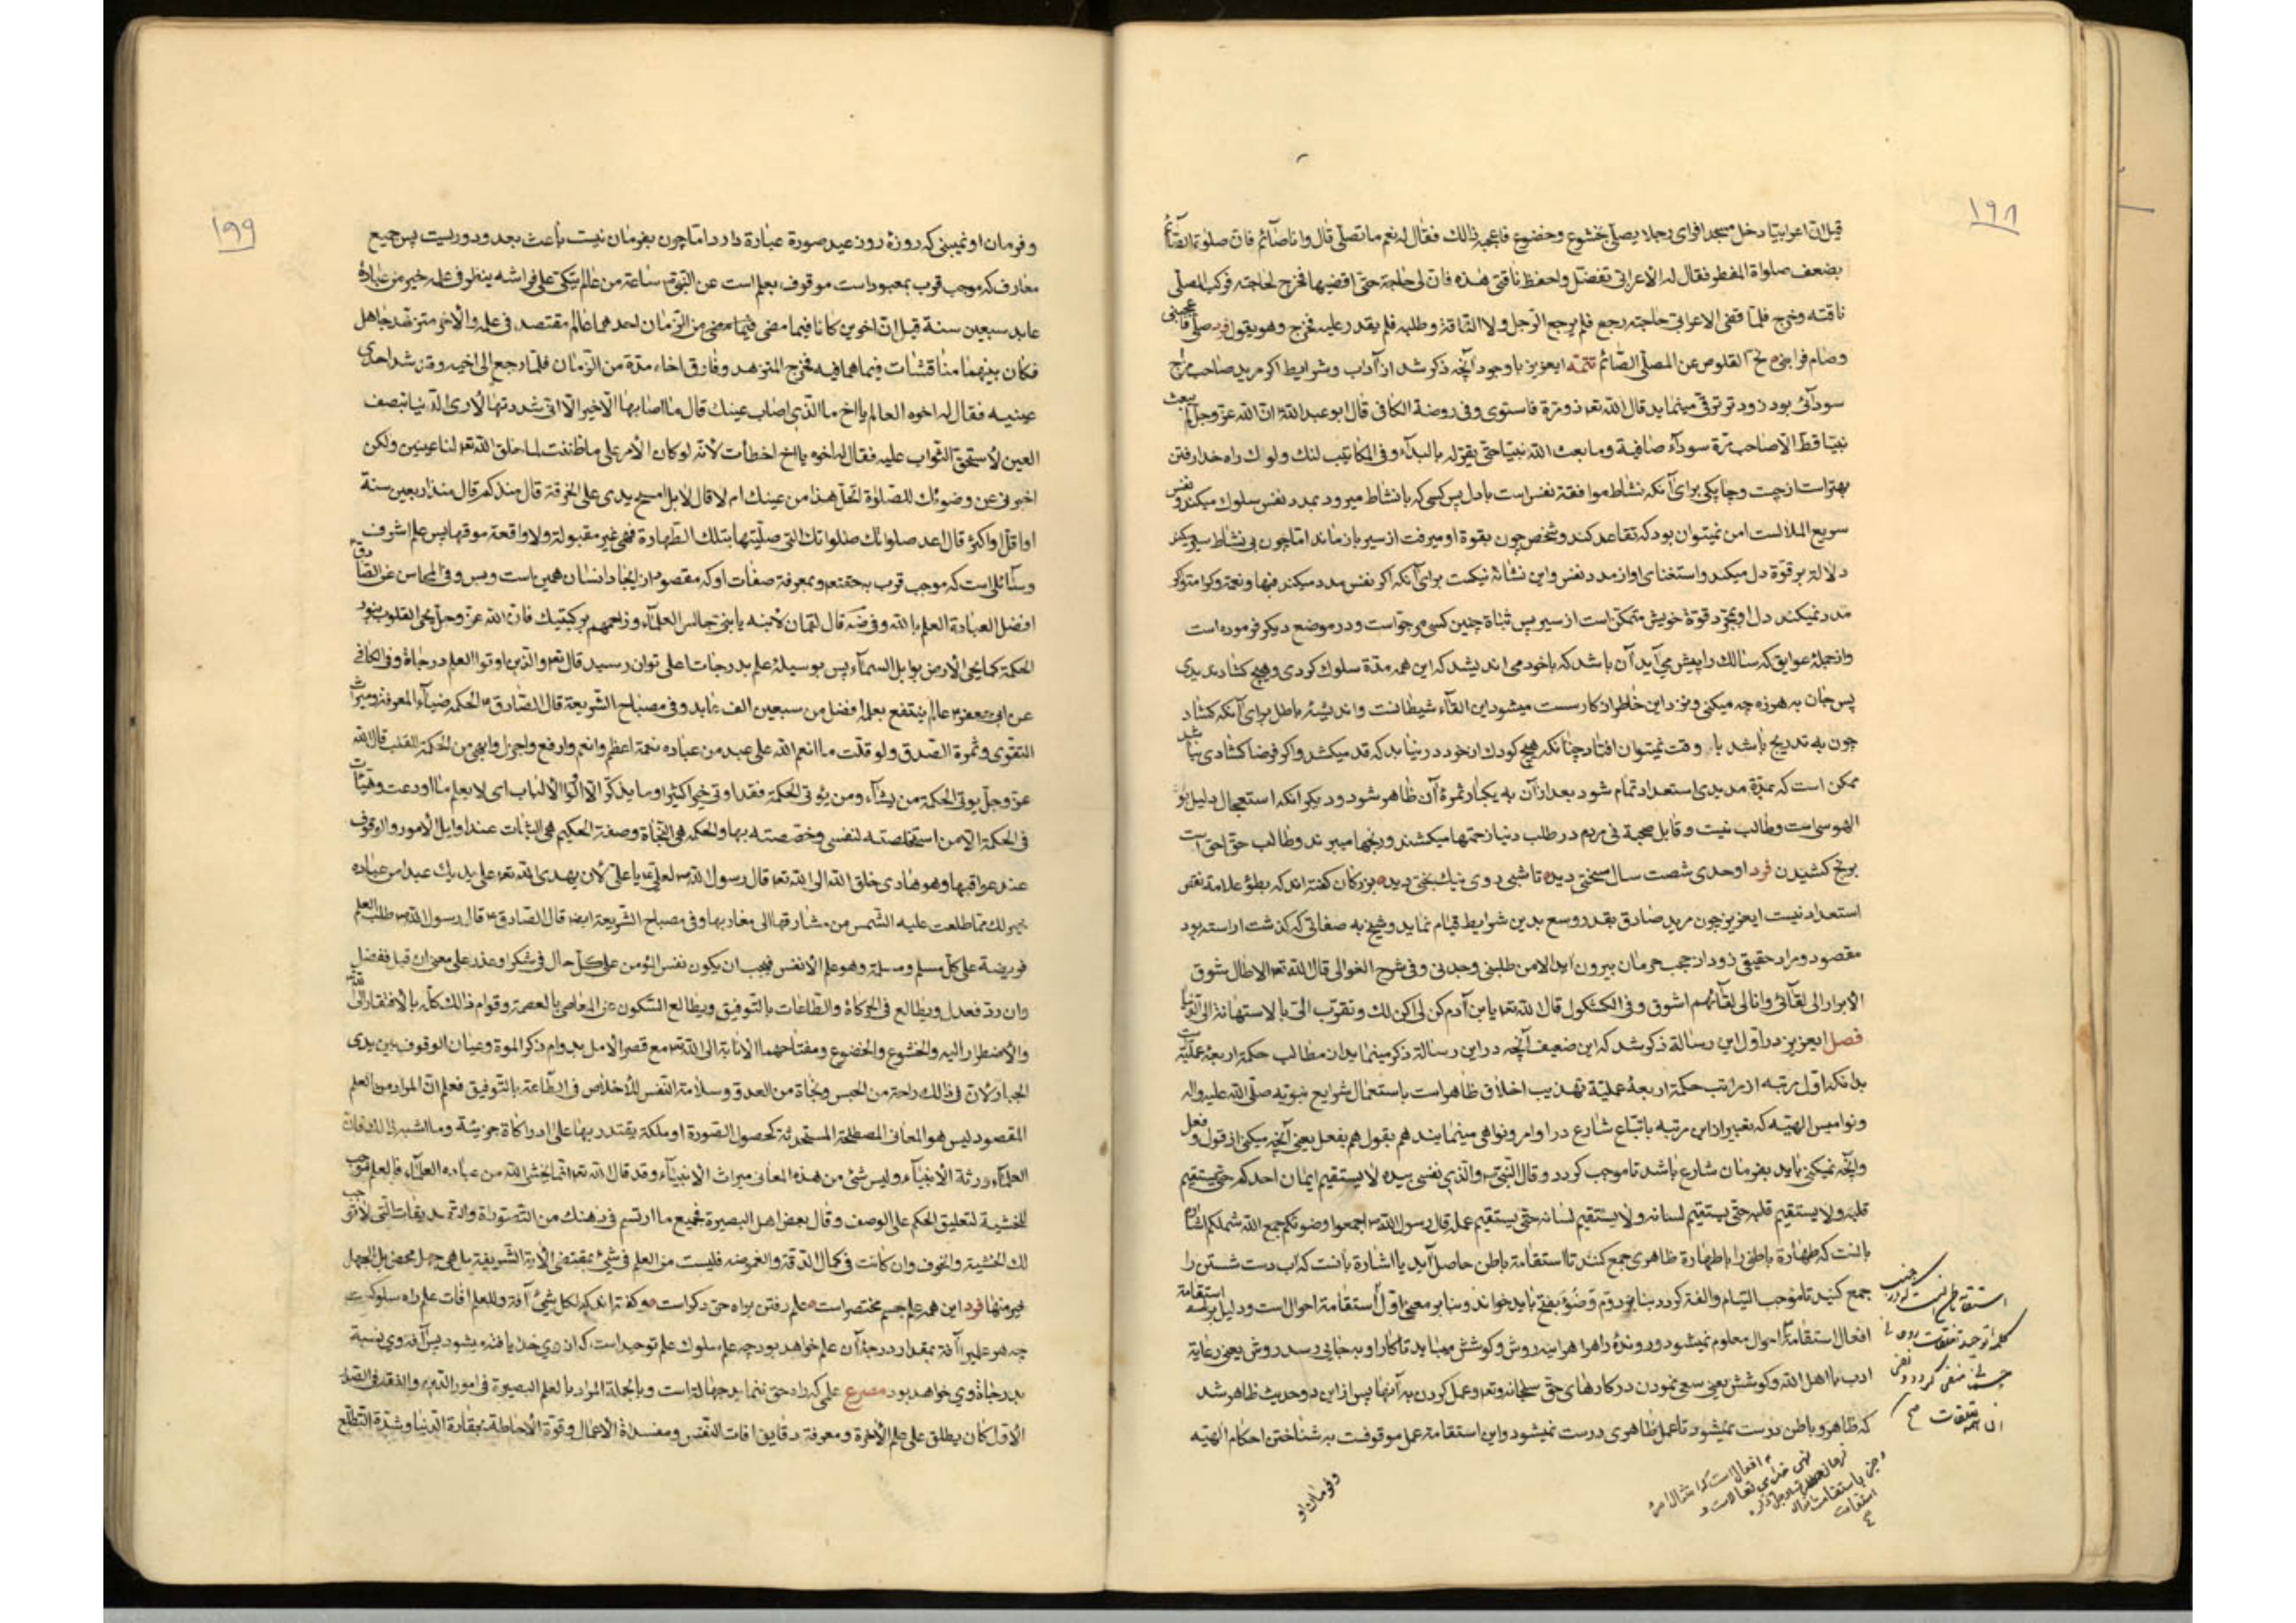 ۱۹۸
قیل ان اعرابیا دخل مسجدا فرای رجلا یصلی بخشوع وخضوع فاعجبه ذالك فقال له نعم ما تصلی قال وانا صائم فان صلوة الصائم
بضعف صلواة المفطر فقال له الاعرابی تفضل واحفظ ناقتی هذه فان لی حاجة حتی اقضیها فخرج لحاجته فرکب المصلی
ناقته وخرج فلما قضی الاعرابی حاجته رجع فلم یرجع الرجل ولا الناقة وطلبه فلم یقدر علیه فخرج وهو یقول فرد صلی فاعجبنی
وصام فرابنی نح القلوص عن المصلی الصائم تتمه ایعزیز با وجود آنچه ذکر شد از آداب وشرایط اکر مرید صاحب مزاج
سودآئی بود زودتر ترقی مینماید قال الله تعه ذو مرة فاستوی وفی روضة الکافی قال ابو عبدالله ان الله عز وجل لم یبعث
نبیا قط الا صاحب مرة سودآء صافیة وما بعث الله نبیا حتی یقر له بالبدآء وفی المکاتیب لنك ولوك راه خدا رفتن
بهتر است از چست وچابکی برای آنکه نشاط موافقة نفس است با دل پس کسی که با نشاط میرود بمدد نفس سلوك میکند ونفس
سریع الملالست امن نمیتوان بود که تقاعد کند وشخص چون بقوة او میرفت از سیر باز ماند اما چون بی نشاط سیر میکند
دلالة بر قوة دل میکند واستغنای او از مدد نفس واین نشانه نیکست برای آنکه اکر نفس مدد میکند فبها ونعم وکر
مدد نمیکند دل او بمجرد قوة خویش متمکن است از سیر پس ثباة چنین کسی مرجو است ودر موضع دیکر فرموده است
واز جملهٔ عوایق که سالك را پیش می آید آن باشد که با خود می اندیشد که این همه مدة سلوك کردی وهیچ کشاد ندیدی
پس جان به هرزه چه میکنی وز این خاطر در کار سست میشود این القآء شیطانست واندیشهٔ باطل برای آنکه کشاد
چون به تدریج باشد با وقت نمیتوان افتاد چنانکه هیچ کودك از خود در نیابد که قد میکشد واکر فرضا کشادی نباشد
ممکن است که بمدة مدیدی استعداد تمام شود بعد از آن به یکبار ثمرهٔ آن ظاهر شود ودیکر آنکه استعجال دلیل بو
الهوسی است وطالب نیست وقابل صحبة نی مردم در طلب دنیا زحمتها میکشند ورنجها میبرند وطالب حق احق است
برنج کشیدن فرد اوحدی شصت سال سختی دید تا شبی روی نیك بختی دید بزرکان کفته اند که بطوء علامة نقص
استعداد نیست ایعزیز چون مرید صادق بقدر وسع بدین شرایط قیام نماید وشیخ به صفاتی که کذشت اراسته بود
مقصود ومراد حقیقی زود از حجب حرمان بیرون آید الا من طلبنی وجدنی وفی شرح الغوالی قال الله تعه الا طال شوق
الابرار الی لقآئی وانا الی لقآئهم اشوق وفی الکشکول قال الله تعه یا بن آدم کن لی اکن لك وتقرب الی بالاستهانة الی الدنیا
فصل ایعزیز در اول این رسالة ذکر شد که این ضعیف آنچه در این رسالة ذکر مینماید از مطالب حکمة اربعهٔ عملیه است
بدانکه اول مرتبه از مراتب حکمة اربعهٔ عملیة تهذیب اخلاق ظاهر است باستعمال شرایع نبویه صلی الله علیه واله
ونوامیس الهیه که تعبیر از این مرتبه باتباع شارع در اوامر ونواهی مینمایند هم بقول هم بفعل یعنی آنچه میکنی از قول وفعل
وآنچه نمیکنی باید بفرمان شارع باشد تا موجب کردد وقال النبی والذی نفسی بیده لا یستقیم ایمان احدکم حتی یستقیم
قلبه ولا یستقیم قلبه حتی یستقیم لسانه ولا یستقیم لسانه حتی یستقیم عمله قال رسول الله اجمعوا وضوئکم جمع الله شملکم اشارة
بانست که طهارة باطن را با طهارة ظاهری جمع کنند تا استقامة باطن حاصل آید یا اشارة بانست که آب دست شستن را
جمع کنید تا موجب التیام والفة کردد بنا بر دوم وضوء بفتح باید خواند وبنا بر معنی اول استقامة احوالست ودلیل بر استقامة
افعال استقامة احوال معلوم نمیشود وروندهٔ راه را هراینه روش وکوشش میباید تا کار او به جایی رسد روش یعنی رعایة
ادب با اهل الله وکوشش یعنی سعی نمودن در کارهای حق سبحانه وتعه وعمل کردن به آنها پس از این دو حدیث ظاهر شد
که ظاهر وباطن درست نمیشود تا عمل ظاهری درست نمیشود واین استقامة عمل موقوفست به شناختن احکام الهیه
وفرمان او
۱۹۹
وفرمان او نمیبینی که روزهٔ روز عید صورة عبارة دارد اما چون بفرمان نیست باعث بعد ودوریست پس جمیع
معارف که موجب قرب بمعبود است موقوف بعلم است عن النبی ساعة من عالم یتکی علی فراشه ینظر فی علمه خیر من عبادة
عابد سبعین سنة قیل ان اخوین کانا فیما مضی من الزمان احدهما عالم مقتصد فی علمه والآخر متزهد جاهل
فکان بینهما مناقشات فیما هما فیه فخرج المتزهد وفارق اخاه مدة من الزمان فلما رجع الی اخیه وقد شد احدی
عینیه فقال له اخوه العالم یا اخ ما الذی اصاب عینك قال ما اصابها الا خیر الا انی شددتها لاری الدنیا بنصف
العین لاستحق الثواب علیه فقال له اخوه یا اخ اخطأت لانه لو کان الامر علی ما ظننت لما خلق الله تعه لنا عینین ولکن
اخبرنی عن وضوئك للصلوة اتحل هذا من عینك ام لا قال لا بل امسح یدی علی الخرقة قال منذ کم قال منذ اربعین سنة
او اقل او اکثر قال اعد صلواتك صلواتك التی صلیتها بتلك الطهارة فهی غیر مقبولة ولا واقعة موقعها پس علم اشرف
وسآئل است که موجب قرب به حقتعه وبمعرفة صفات او که مقصود از ایجاد انسان همین است وبس وفی المحاسن عن الصادق
افضل العبادة العلم بالله وفی ضه قال لقمان لابنه یا بنی جالس العلمآء وزاحمهم برکبتیك فان الله عز وجل یحی القلوب بنور
الحکمة کما یحی الارض بوابل السمآء پس بوسیلهٔ علم بدرجات اعلی توان رسید قال تعه والذین اوتوا العلم درجاة وفی الکافی
عن ابی جعفر عالم ینتفع بعلمه افضل من سبعین الف عابد وفی مصباح الشریعة قال الصادق الحکمة ضیآء المعرفة ومیراث
التقوی وثمرة الصدق ولو قلت ما انعم الله علی عبد من عباده نعمة اعظم وانعم وارفع واجزل وابهی من الحکمة للقلب قال الله
عز وجل یوتی الحکمة من یشآء ومن یؤتی الحکمة فقد اوتی خیرا کثیرا وما یذکر الا اولوا الالباب ای لا یعلم ما اودعت وهیأت
فی الحکمة الا من استخلصته لنفسی وخصصته بها والحکمه هی النجاة وصفة الحکیم هی الثبات عند اوایل الامور والوقوف
عند عواقبها وهو هادی خلق الله الی الله تعه قال رسول الله لعلی یا علی لان یهدی الله تعه علی یدیك عبدا من عباده
خیر لك مما طلعت علیه الشمس من مشارقها الی مغاربها وفی مصباح الشریعة ایضا قال الصادق قال رسول الله طلب العلم
فریضة علی کل مسلم ومسلمة وهو علم الانفس فیجب ان یکون نفس المؤمن علی کل حال فی شکر او عذر علی معنی ان قبل ففضل
وان رد فعدل ویطالع فی الحرکاة والطاعات بالتوفیق ویطالع السکون عن المعاصی بالعصمة وقوام ذالك کله بالافتقار الی الله
والاضطرار الیه والخشوع والخضوع ومفتاحهما الانابة الی الله مع قصر الامل بدوام ذکر الموة وعیان الوقوف بین یدی
الجبار لان فی ذالك راحة من الحبس ونجاة من العدو وسلامة النفس للاخلاص فی الطاعة بالتوفیق فعلم ان المراد من العلم
المقصود لیس هو المعانی المصطلحة المستحدثة کحصول الصورة او ملکة یقتدر بها علی ادراکاة جزئیة وما اشبه ذالك فان
العلمآء ورثة الانبیآء ولیس شئ من هذه المعانی میراث الانبیآء وقد قال الله تعه انما یخشی الله من عباده العلمآء فالعلم موجب
للخشیة لتعلیق الحکم علی الوصف وقال بعض اهل البصیرة فجمیع ما ارتسم فی ذهنك من التصوراة والتصدیقات التی لا توجب
لك الخشیة والخوف وان کانت فی کمال الدقة والغموضه فلیست من العلم فی شئ بمقتضی الآیة الشریفة بل هی جهل محض بل الجهل
خیر منها فرد این همه علم جسم مختصر است علم رفتن براه حق دکر است وکفته اند که لکل شئ آفة وللعلم افات علم راه سلوك
چه هر علمی را آفة بمقدار درجهٔ آن علم خواهد بود چه علم سلوك علم توحید است
بدرجاة وی خواهد بود مصرع علمی که راه حق ننماید جهالة است وبالجملة المراد بالعلم البصیرة فی امور الدین والفقه فی الصدر
الاول کان یطلق علی علم الآخرة ومعرفة دقایق افات النفس ومفسداة الاعمال وقوة الاحاطة بحقارة الدنیا وشدة التطلع